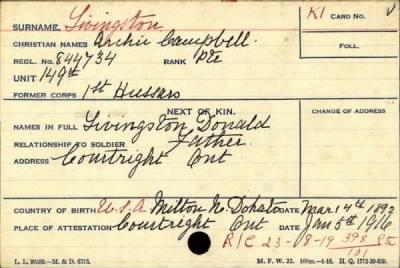 SURNAME, Livingston K1 CARD NO. V
CHRISTIAN NAMES Archie Campbell. FOLL.
REGL. NO. 844734 RANK Pte
UNIT 149th
FORMER CORPS 1st Hussars
NEXT OF KIN. CHANGE OF ADDRESS
NAMES IN FULL Livingston Donald
RELATIONSHIP TO SOLDIER Father
ADDRESS Courtright Ont
COUNTRY OF BIRTH U.S.A Milton N. Dakota DATE Mar. 14th 1892
PLACE OF ATTESTATION Courtright Ont DATE Jan 5th 1916
R/C 23-8-19 398
101
L. L. M. & D. 6312. M. F. W. 22. H. Q. 1772-39-839.